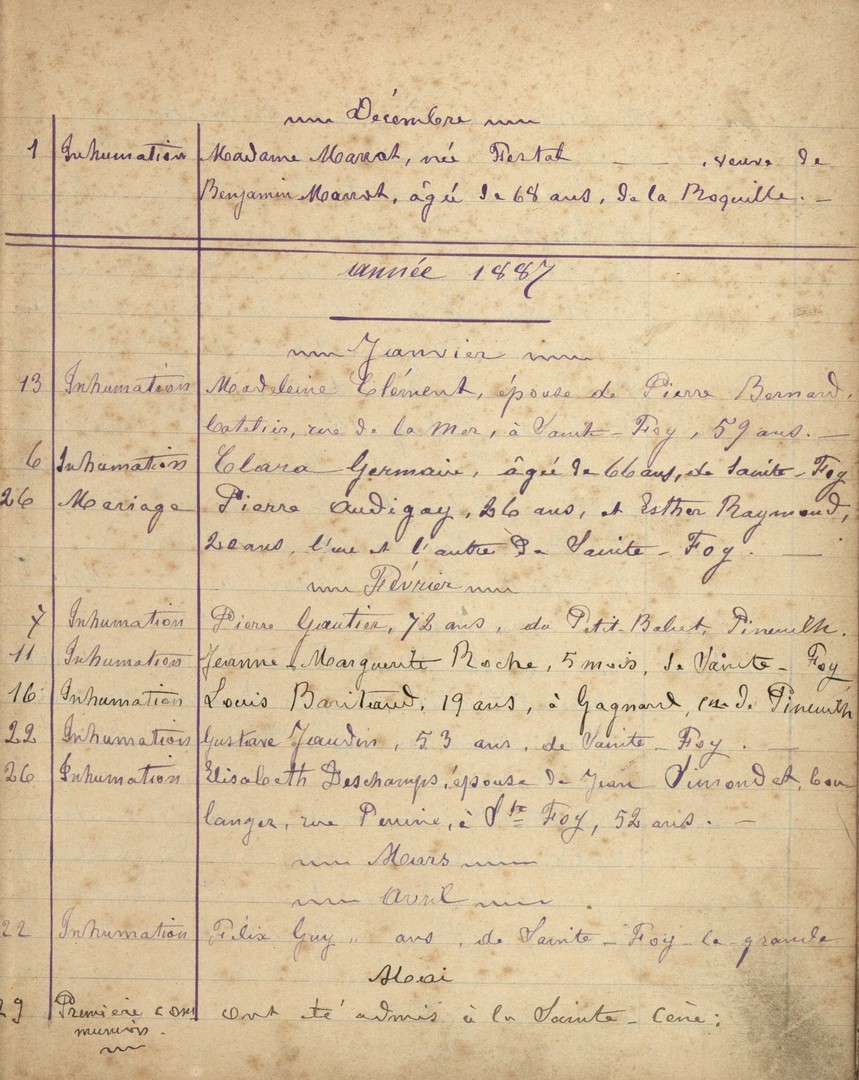 Décembre
1 Inhumation Madame Marrot, née Festal veuve de
Benjamin Marrot, âgée de 68 ans, de la Roquille. —
année 1887
Janvier
13 Inhumation Madeleine Clément, épouse de Pierre Bernard,
rue de la Mer, à Sainte-Foy, 59 ans. —
6 Inhumation Clara Germain, âgée de 66 ans, de Sainte-Foy
26 Mariage Pierre Audigay, 26 ans, et Esther Raymond,
20 ans, l'un et l'autre de Sainte-Foy. —
Février
7 Inhumation Pierre Gautier, 72 ans, du Petit- Pineuilh.
11 Inhumation Jeanne-Marguerite Roche, 5 mois, de Sainte-Foy
16 Inhumation Louis Baritaud, 19 ans, à Gagnard, cne de Pineuilh
22 Inhumation Gustave Jeaudin, 53 ans, de Sainte-Foy. —
26 Inhumation Elisabeth Deschamps, épouse de Jean Simondet, bou
langer, rue Perrine, à Ste Foy, 52 ans. —
Mars
Avril
22 Inhumation Félix Guy " ans, de Sainte-Foy-la-grande
Mai
29 Première com ont été admis à la Sainte-Cène:
munion.